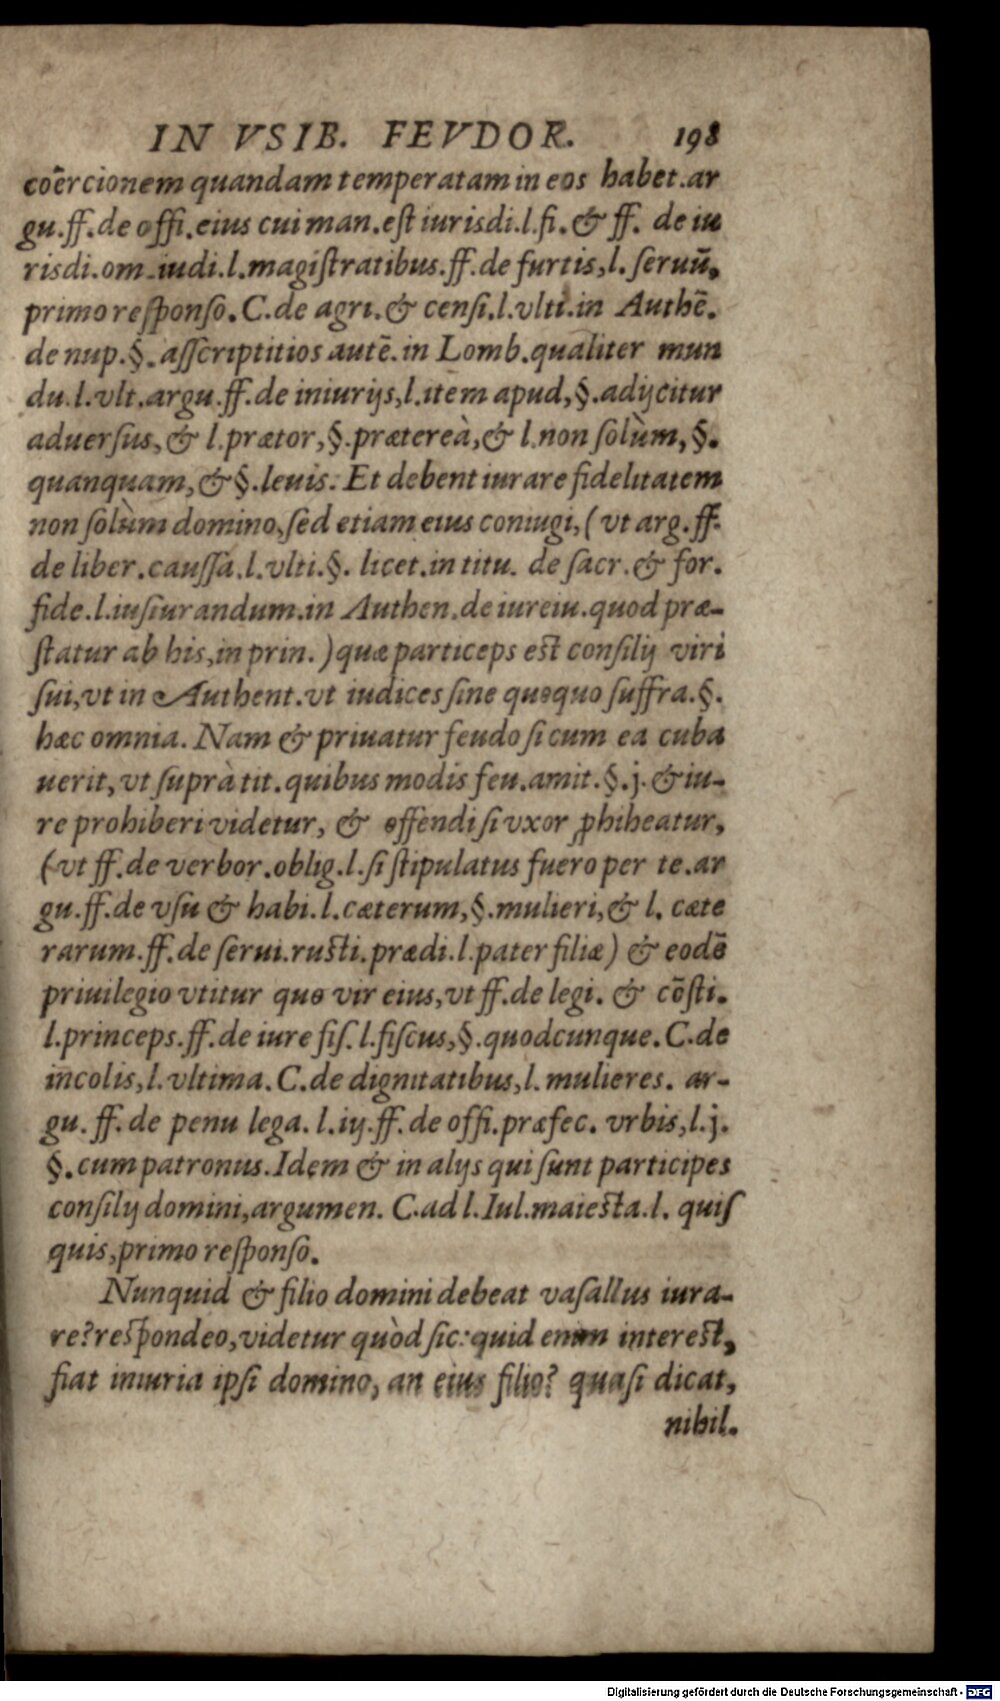 IN VSIB. FEVDOR. 198
coërcionem quandam temperatam in eos habet.ar
gu.ff.de offi.eius cui man.est iurisdi.l.fi.& ff. de iu
risdi.om.iudi.l.magistratibus.ff.de furtis,l.seruū,
primo responso.C.de agri.& censi.l.vlti.in Authē.
de nup.§.asscriptitios autē.in Lomb.qualiter mun
du.l.vlt.argu.ff.de iniurijs,l.item apud,§.adijcitur
aduersus,& l.prætor,§.prætereà,& l.non solùm,§.
quanquam,&§.leuis. Et debent iurare fidelitatem
non solùm domino,sed etiam eius coniugi,(vt arg.ff.
de liber.caussa.l.vlti.§. licet.in titu. de sacr.& for.
fide.l.iusiurandum.in Authen.de iureiu.quod præ-
statur ab his,in prin.)quæ particeps est consilij viri
sui,vt in Authent.vt iudices sine quoquo suffra.§.
hæc omnia. Nam & priuatur feudo si cum ea cuba
uerit,vt suprà tit.quibus modis feu.amit.§.j.& iu-
re prohiberi videtur, & offendi si vxor ꝓhibeatur,
(vt ff.de verbor.oblig.l.si stipulatus fuero per te.ar
gu.ff.de vsu & habi.l.cæterum,§.mulieri,& l. cæte
rarum.ff.de serui.rusti.prædi.l.pater filiæ) & eodē
priuilegio vtitur quo vir eius,vt ff.de legi. & cōsti.
l.princeps.ff.de iure fis.l.fiscus,§.quodcunque.C.de
incolis,l.vltima.C.de dignitatibus,l.mulieres. ar-
gu.ff.de penu lega.l.iij.ff.de offi.præfec. vrbis,l.j.
§.cum patronus.Idem & in alijs qui sunt participes
consilij domini,argumen. C.ad l.Iul.maiesta.l. quis
quis,primo responso.
Nunquid & filio domini debeat vasallus iura-
re?respondeo,videtur quòd sic:quid enim interest,
fiat iniuria ipsi domino, an eius filio? quasi dicat,
nihil.
Digitalisierung gefördert durch die Deutsche Forschungsgemeinschaft - DFG